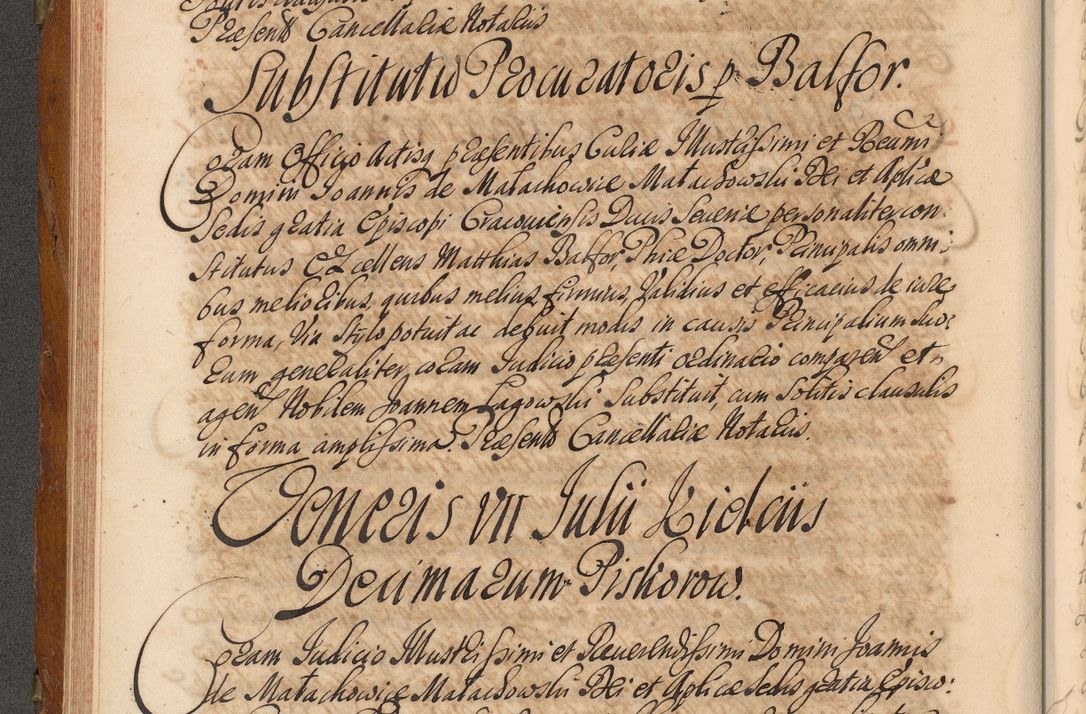 Præsentib Cancellariæ Notariis
Substitutio Procuratoris p Balfor.
Coram Officio Actisq præsentibus Curiæ Illustrissimi et Reverendissimi
Domini Joannis de Małachowice Małachowski Dei et Aplicæ
Sedis gratia Episcopi Cracoviensis Ducis Severiæ personaliter con:
stitutus Excellens Matthias Balfor, Phiæ Doctor, Principalis omni:
bus melioribus, quibus melius, firmius, validius et efficacius de iure,
forma, via stylo potuit ac debuit modis in causis Principalium suo:
rum generaliter, coram Judicio præsenti ordinario comparen et
agen Nobilem Joannem Łagowski substituit, cum solitis clausulis
in forma amplissima. Præsentib Cancellariæ Notariis.
Veneris VII Julii Kielciis
Decimarum Piskorow.
Coram Judicio Illustrissimi et Reverendissimi Domini Joannis
de Małachowice Małachowski Dei et Aplicæ Sedis gratia Episco: